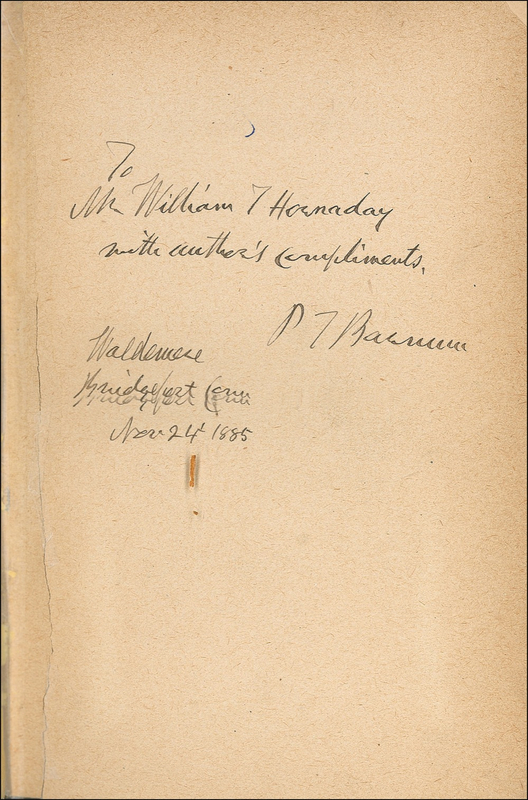 To
Mr William T Hornaday
with author's compliments.
P T Barnum
Waldemere
Bridgeport Conn
Nov 24 1885